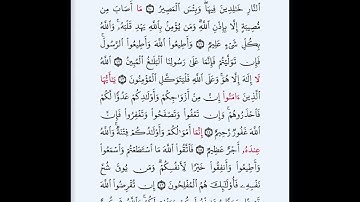 ٱلنَّارِ خَٰلِدِينَ فِيهَا ۖ وَبِئْسَ ٱلْمَصِيرُ ۝ مَا أَصَابَ مِن
مُّصِيبَةٍ إِلَّا بِإِذْنِ ٱللَّهِ ۗ وَمَن يُؤْمِنۢ بِٱللَّهِ يَهْدِ قَلْبَهُۥ ۚ وَٱللَّهُ
بِكُلِّ شَىْءٍ عَلِيمٌ ۝ وَأَطِيعُوا۟ ٱللَّهَ وَأَطِيعُوا۟ ٱلرَّسُولَ ۚ
فَإِن تَوَلَّيْتُمْ فَإِنَّمَا عَلَىٰ رَسُولِنَا ٱلْبَلَٰغُ ٱلْمُبِينُ ۝ ٱللَّهُ
لَا إِلَٰهَ إِلَّا هُوَ ۚ وَعَلَى ٱللَّهِ فَلْيَتَوَكَّلِ ٱلْمُؤْمِنُونَ ۝ يَٰٓأَيُّهَا
ٱلَّذِينَ ءَامَنُوٓا۟ إِنَّ مِنْ أَزْوَٰجِكُمْ وَأَوْلَٰدِكُمْ عَدُوًّا لَّكُمْ
فَٱحْذَرُوهُمْ ۚ وَإِن تَعْفُوا۟ وَتَصْفَحُوا۟ وَتَغْفِرُوا۟ فَإِنَّ
ٱللَّهَ غَفُورٌ رَّحِيمٌ ۝ إِنَّمَآ أَمْوَٰلُكُمْ وَأَوْلَٰدُكُمْ فِتْنَةٌ ۚ وَٱللَّهُ
عِندَهُۥٓ أَجْرٌ عَظِيمٌ ۝ فَٱتَّقُوا۟ ٱللَّهَ مَا ٱسْتَطَعْتُمْ وَٱسْمَعُوا۟
وَأَطِيعُوا۟ وَأَنفِقُوا۟ خَيْرًا لِّأَنفُسِكُمْ ۗ وَمَن يُوقَ شُحَّ
نَفْسِهِۦ فَأُو۟لَٰٓئِكَ هُمُ ٱلْمُفْلِحُونَ ۝ إِن تُقْرِضُوا۟ ٱللَّهَ